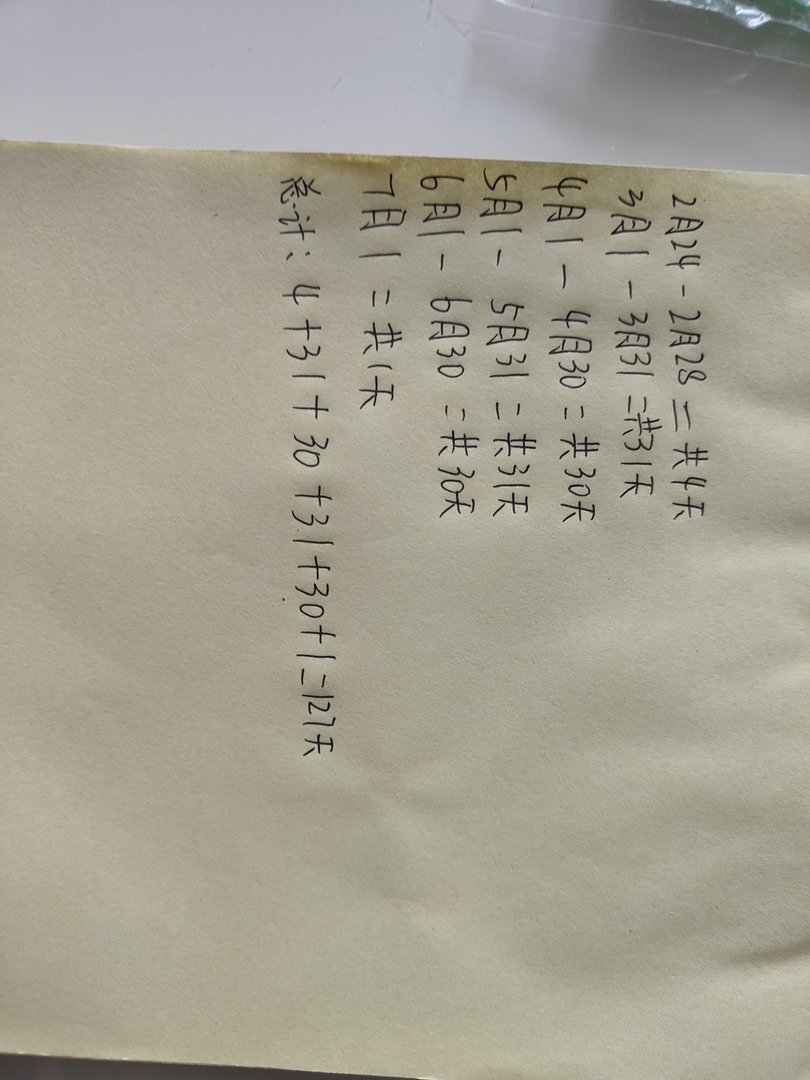 2月24-2月28=共4天
3月1-3月31=共31天
4月1-4月30=共30天
5月1-5月31=共31天
6月1-6月30=共30天
7月1=共1天
总计:4+31+30+31+30+1=127天